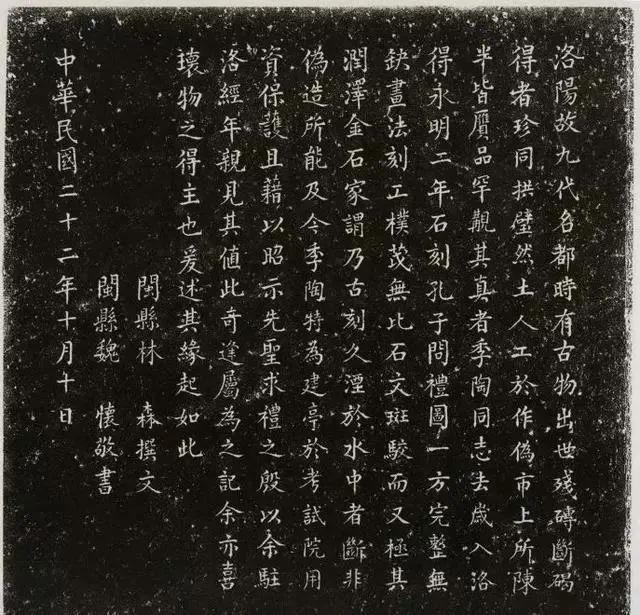 洛陽故九代名都時有古物出世殘磚斷碣
得者珍同拱璧然土人工於作偽市上所陳
半皆贋品罕覯其真者季陶同志去歲入洛
得永明二年石刻孔子問禮圖一方完整無
缺畫法刻工樸茂無比石文斑駮而又極其
潤澤金石家謂乃古刻久湮於水中者斷非
偽造所能及今季陶特為建亭於考試院用
資保護且藉以昭示先聖求禮之殷以余駐
洛經年親見其值此奇逢屬為之記余亦喜
瓌物之得主也爰述其緣起如此
閩縣林 森撰文
閩縣魏 懷敬書
中華民國二十二年十月十日